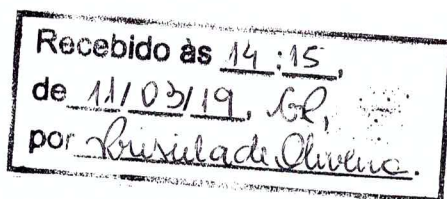 Recebido às 14:15,
de 11/03/19, GR,
por Prisiula de Oliveira.